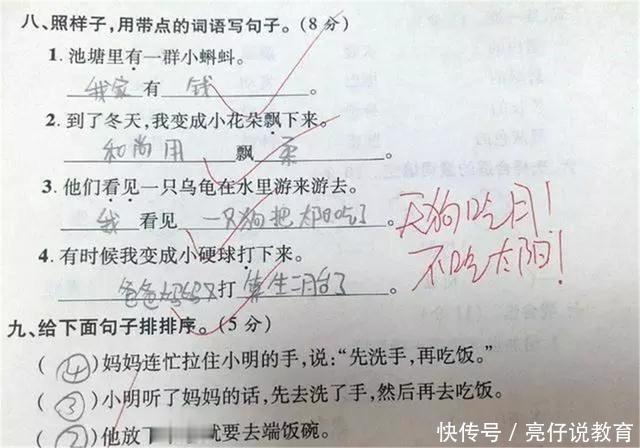 八、照样子,用带点的词语写句子。(8分)
1. 池塘里有一群小蝌蚪。
我家 有 钱 。
2. 到了冬天,我变成小花朵飘下来。
和尚用 飘柔 。
3. 他们看见一只乌龟在水里游来游去。
我 看见 一只狗把太阳吃了 。
天狗吃月!
不吃太阳!
4. 有时候我变成小硬球打下来。
爸爸妈妈又打 算生二月台了 。
九、给下面句子排排序。(5分)
(④)妈妈连忙拉住小明的手,说:“先洗手,再吃饭。”
(③)小明听了妈妈的话,先去洗了手,然后再去吃饭。
(②)他放下 就要去端饭碗。
快传号 / 亮仔说教育